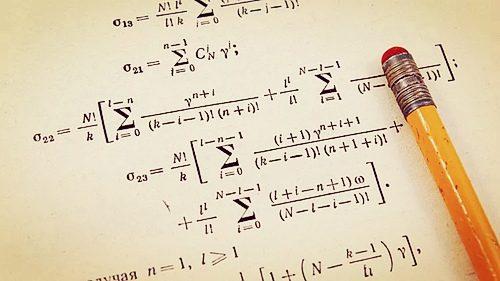 σ₁₃ = N! lˡ / l! k ∑ i=0 (k−i−1)!
σ₂₁ = ∑ i=0 n−1 Cᵢ_N γⁱ;
σ₂₂ = N!/k [ ∑ i=0 l−n γⁿ⁺ⁱ / (k−i−1)! (n+i)! + lˡ/l! ∑ i=1 N−l−1 (N− −1)! ];
σ₂₃ = N!/k [ ∑ i=0 l−n−1 (i+1) γⁿ⁺ⁱ⁺¹ / (k−i−1)! (n+i+1)! +
+ lˡ/l! ∑ i=0 N−l−1 (l+i−n+1) ω / (N−l−i−1)! ].
случая n=1, l⩾1
[ 1 + (N − k−1 / l! ) γ ],